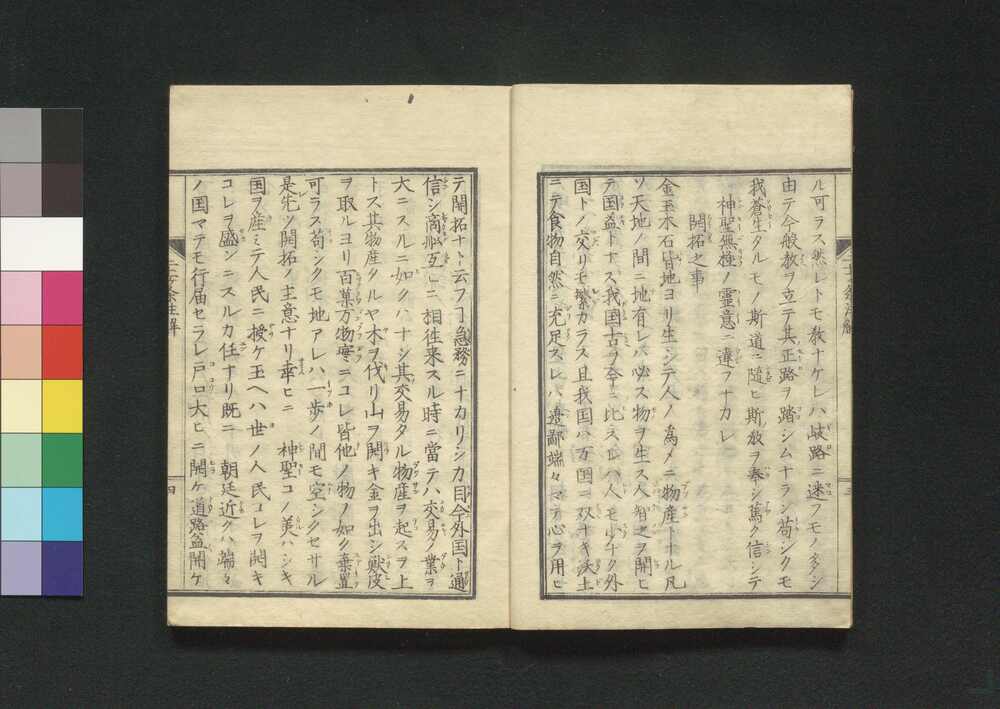 ル可ラス然レトモ教ナケレハ岐路ニ迷フモノ多シ
由テ今般教ヲ立テ其正路ヲ踏シムナラン苟シクモ
我蒼生タルモノ斯道ニ随ヒ斯教ヲ奉シ篤ク信シテ
神聖無極ノ霊意ニ違フナカレ
開拓之事
金玉木石皆地ヨリ生シテ人ノ為メニ物産トナル凡
ソ天地ノ間ニ地有レハ必ス物ヲ生ス人智之ヲ開ヒ
テ国益トナス我国古ヲ今ニ比スレハ人モ少ナク外
国トノ交リモ繁カラス且我国ハ万国ニ双ナキ沃土
ニテ食物自然ニ充足スレハ邉鄙端々マテ心ヲ用ヒ
テ開拓ナト云フヿ急務ニナカリシカ目今外国ト通
信シ商舩互ニ相往来スル時ニ當テハ交易ノ業ヲ
大ニスルニ如クハナシ其交易タル物産ヲ起スヲ上
トス其物産タルヤ木ヲ伐リ山ヲ開キ金ヲ出シ獣皮
ヲ取ルヨリ百菓万物寔ニコレ皆他ノ物ノ如ク棄置
可ラス苟シクモ地アレハ一歩ノ間モ空シクセサル
是先ツ開拓ノ主意ナリ幸ヒニ 神聖コノ美ハシキ
国ヲ産ミテ人民ニ授ケ玉ヘハ世ノ人民コレヲ開キ
コレヲ盛ンニスルカ任ナリ既ニ 朝廷近クハ端々
ノ国マテモ行届セラレ戸口大ヒニ開ケ道路益開ケ
四